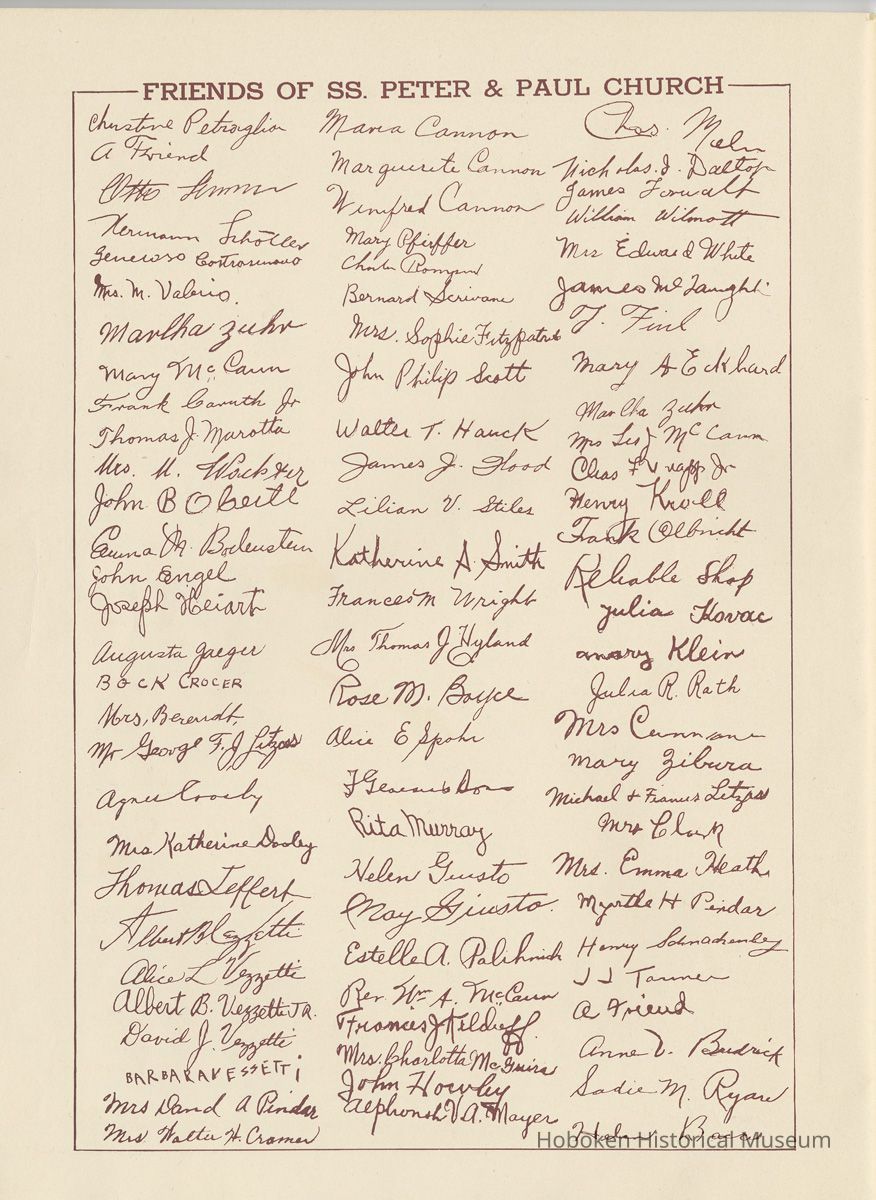 FRIENDS OF SS. PETER & PAUL CHURCH
Christine Petroglia
A Friend
Otto
Hermann Schöller
Generoso
Mrs. M. Valerio.
Martha Zuhr
Mary McCann
Frank Caruth Jr
Thomas J. Marotta
Mrs. M.
John B Obertl
Emma M. Bodenstein
John Engel
Joseph Heiart
Augusta Jaeger
BOCK CROCER
Mrs. Berendt
Mr George F. J Litzas
Agnes Crosby
Mrs Katherine Dooley
Thomas Leffert
Albert B Vezzetti
Alice L Vezzetti
Albert B. Vezzetti JR.
David J. Vezzetti
BARBARA VESSETTI
Mrs David A Pindar
Mrs Walter H. Cramer
Maria Cannon
Marguerite Cannon
Winifred Cannon
Mary Pfeiffer
Bernard Scrivani
Mrs. Sophie Fitzpatrick
John Philip Scott
Walter T. Hauck
James J. Flood
Lilian V. Stiles
Katherine A Smith
Frances M Wright
Mrs Thomas J Hyland
Rose M. Boyce
Alice E Spohr
Rita Murray
Helen Giusto
May Giusto.
Estelle A.
Rev. Wm A. McCann
Francis J Kilduff
Mrs. Charlotta McGuire
John Howley
Alphonsh V.A. Mayer
Chas.
Nicholas. J. Dalton
James
William Wilmott
Mrs Edward White
James McLaughli
Mary A Eckhard
Martha Zuhr
Mrs McCann
Chas Jr
Henry Kroll
Frank Olbricht
Reliable Shop
Julia Kovac
Mary Klein
Julia R. Rath
Mrs
Mary Zibura
Michael & Francis Litzas
Mrs Clark
Mrs. Emma Heath
Myrtle H Pindar
Henry Schnackenberg
J J Tanner
A Friend
Anne V. Budrick
Sadie M. Ryan
Hoboken Historical Museum